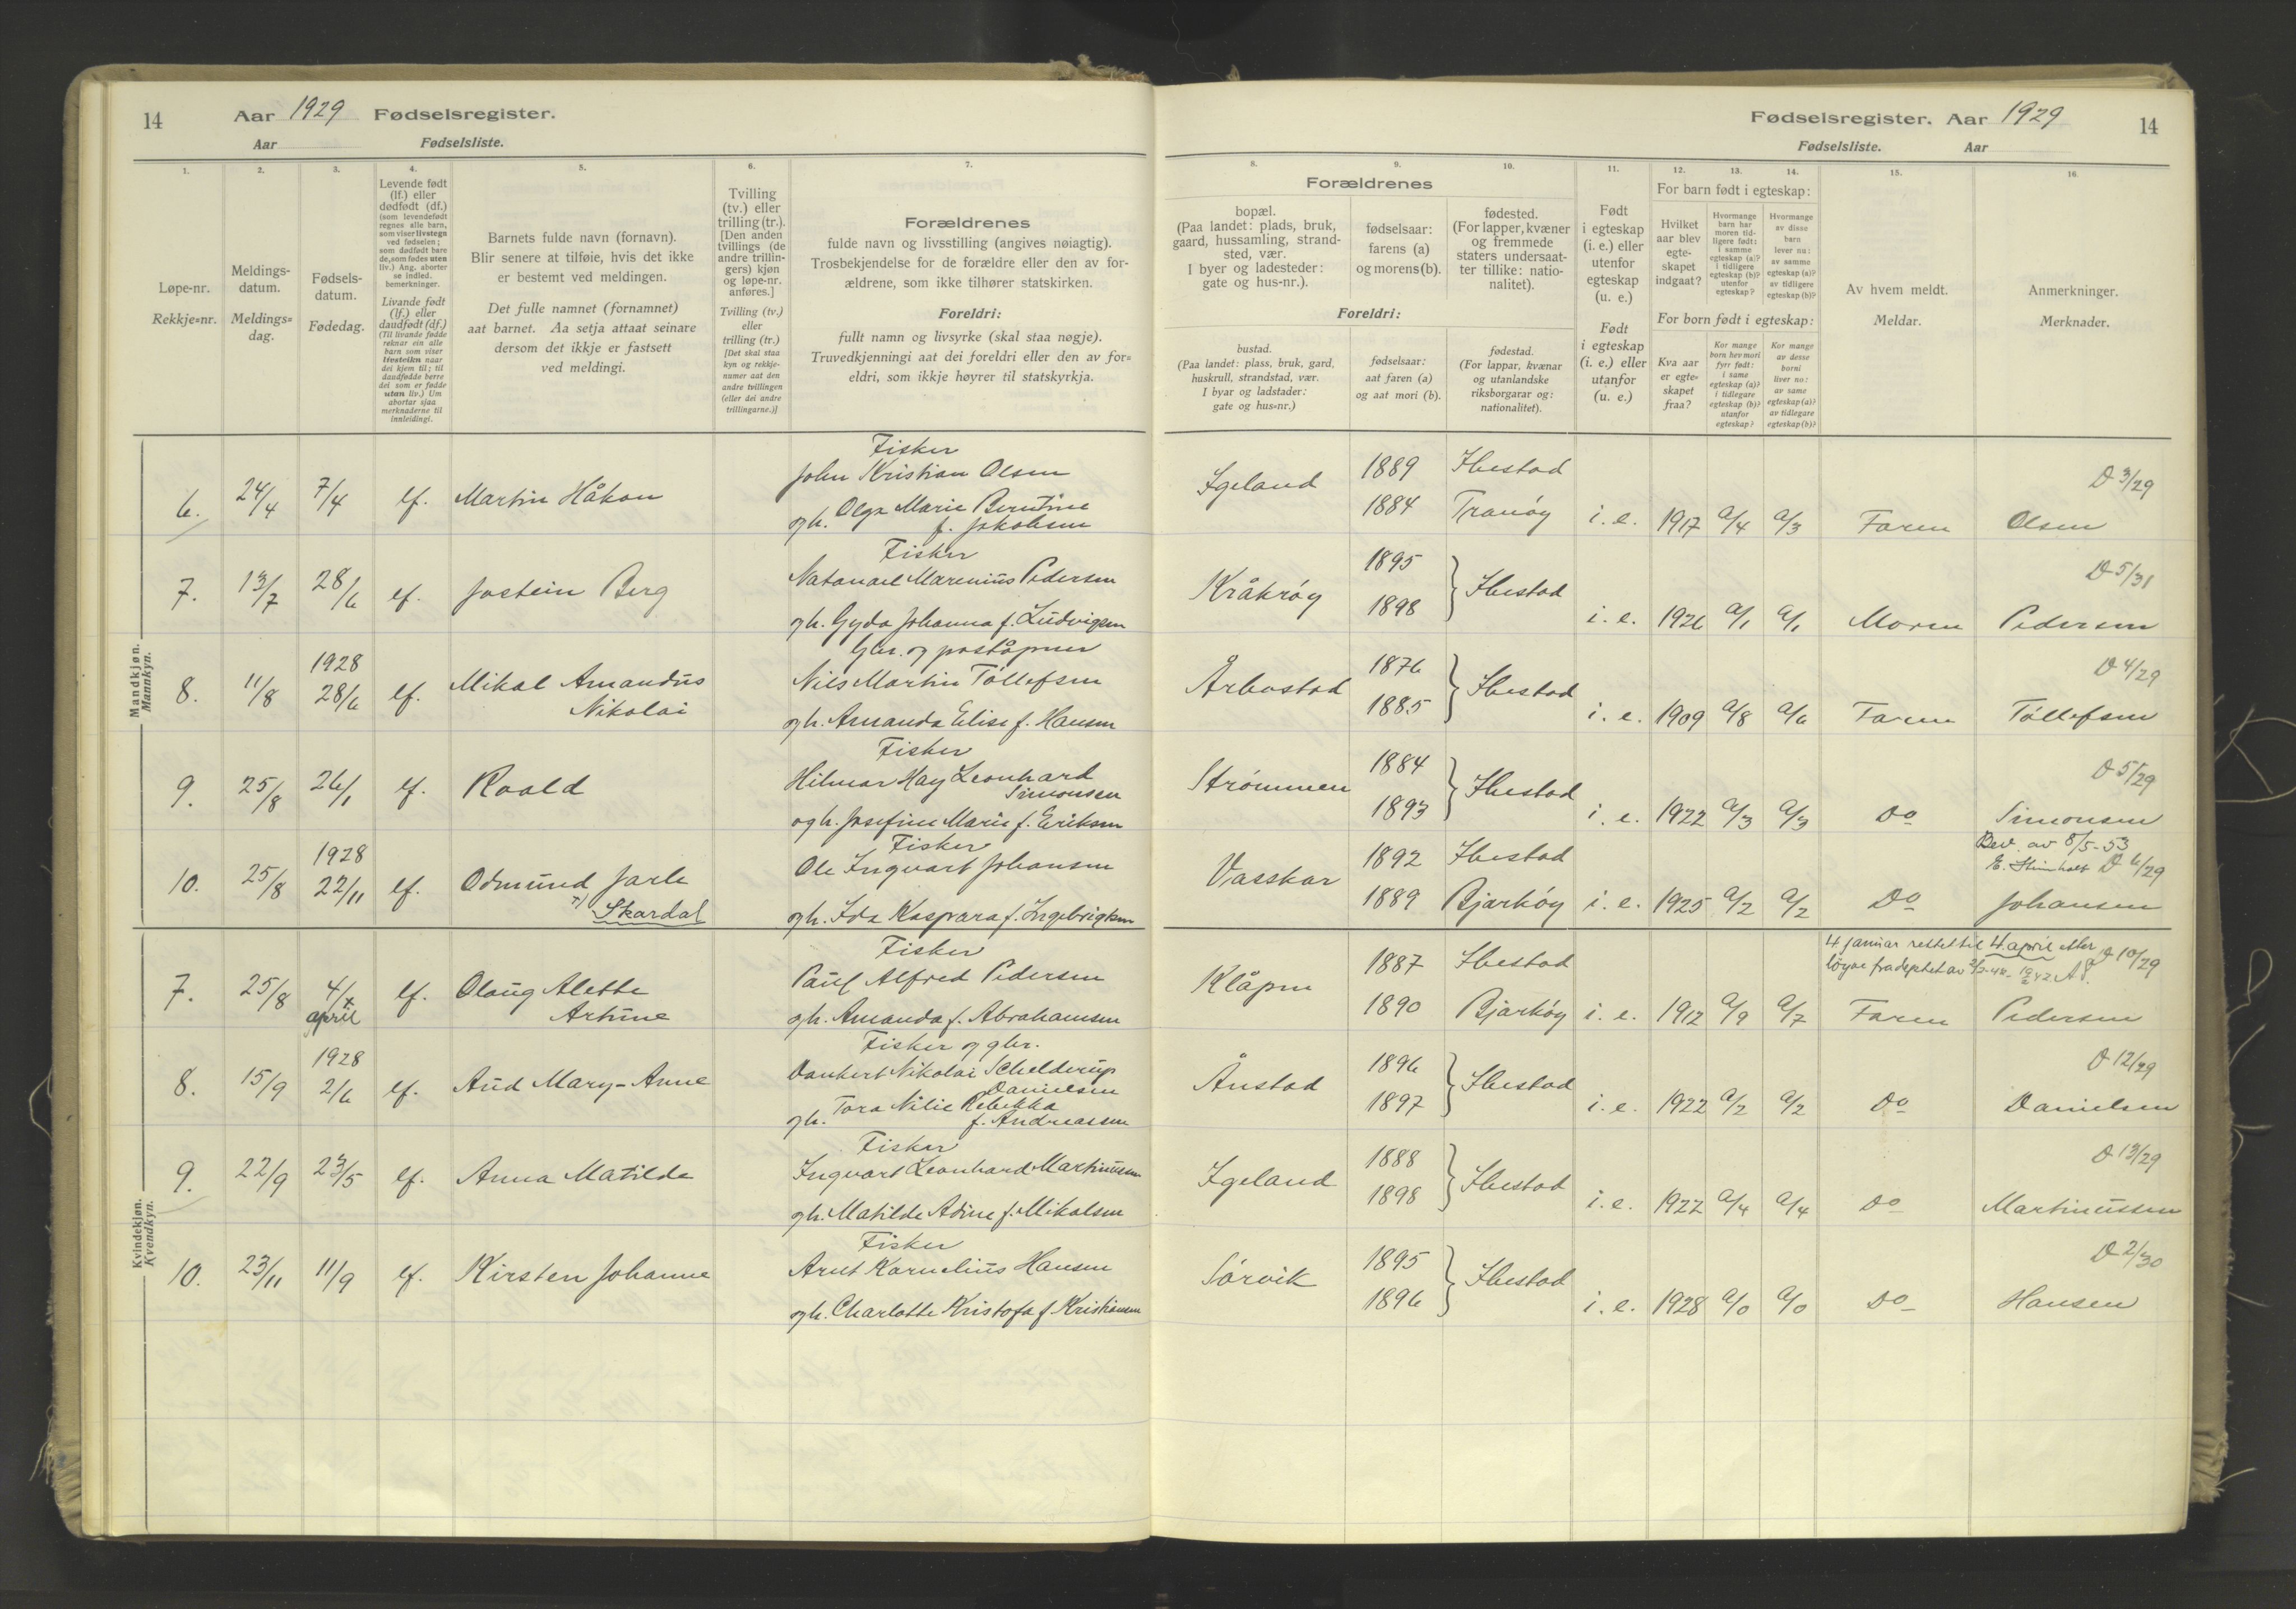 14 Aar 1929 Fødselsregister.
Aar Fødselsliste.
Fødselsregister. Aar 1929 14
Fødselsliste. Aar
1.
Løpe-nr.
Rekkje=nr.
2.
Meldings-
datum.
Meldings=
dag.
3.
Fødsels-
datum.
Fødedag.
4.
Levende født
(lf.) eller
dødfødt (df.)
(som levendefødt
regnes alle barn,
som viser livstegn
ved fødselen;
som dødfødt bare
de, som fødes uten
liv.) Ang. aborter
se indled.
bemerkninger.
Livande født
(lf.) eller
daudfødt (df.)
(Til livande fødde
reknar ein alle
barn som viser
livsteikn naar
dei kjem til; til
daudfødde berre
dei som er fødde
utan liv.) Um
abortar sjaa
merknaderne til
innleidingi.
5.
Barnets fulde navn (fornavn).
Blir senere at tilføie, hvis det ikke
er bestemt ved meldingen.
Det fulle namnet (fornamnet)
aat barnet. Aa setja attaat seinare
dersom det ikkje er fastsett
ved meldingi.
6.
Tvilling
(tv.) eller
trilling (tr.).
[Den anden
tvillings (de
andre trillin-
gers) kjøn
og løpe-nr.
anføres.]
Tvilling (tv.)
eller
trilling (tr.)
[Det skal staa
kyn og rekkje-
numer aat den
andre tvillingen
(eller dei andre
trillingarne.)]
7.
Forældrenes
fulde navn og livsstilling (angives nøiagtig).
Trosbekjendelse for de forældre eller den av for-
ældrene, som ikke tilhører statskirken.
Foreldri:
fullt namn og livsyrke (skal staa nøgje).
Truvedkjenningi aat dei foreldri eller den av for=
eldri, som ikkje høyrer til statskyrkja.
8. 9. 10.
Forældrenes
bopæl.
(Paa landet: plads, bruk,
gaard, hussamling, strand-
sted, vær.
I byer og ladesteder:
gate og hus-nr.).
fødselsaar:
farens (a)
og morens (b).
fødested.
(For lapper, kvæner
og fremmede
staters undersaat-
ter tillike: natio-
nalitet).
Foreldri:
bustad.
(Paa landet: plass, bruk, gard,
huskrull, strandstad, vær.
I byar og ladstader:
gate og hus=nr.)
fødselsaar:
aat faren (a)
og aat mori (b).
fødestad.
(For lappar, kvænar
og utanlandske
riksborgarar og:
nationalitet).
11.
Født
i egteskap
(i. e.) eller
utenfor
egteskap
(u. e.)
Født
i egteskap
(i. e.) eller
utanfor
(u. e.)
12. 13. 14.
For barn født i egteskap:
Hvilket
aar blev
egte-
skapet
indgaat?
Hvormange
barn har
moren tid-
ligere født:
i samme
egteskap (a)?
i tidligere
egteskap (b)?
utenfor
egteskap?
Hvormange
av disse
barn
lever nu:
av samme
egteskap (a)?
av tidligere
egteskap (b)?
For born født i egteskap:
Kva aar
er egte=
skapet
fraa?
Kor mange
born hev mori
fyrr født:
i same
egteskap (a)?
i tidlegare
egteskap (b)?
utanfor
egteskap?
Kor mange
av desse
borni
liver no:
av same
egteskap (a)?
av tidlegare
egteskap (b)?
15.
Av hvem meldt.
Meldar.
16.
Anmerkninger.
Merknader.
Mandkjøn.
Mannkyn.
Fisker
6. 24/4 7/4 lf. Martin Håkon John Kristian Olsen
og h. Olga Marie Berntine
f. Jakobsen
Igeland 1889 Ibestad D 3/29
1884 Tranøy i. e. 1917 a/4 a/3 Faren Olsen
Fisker
7. 13/7 28/6 lf. Jostein Berg Natanael Marenius Pedersen
og h. Gyda Johanna f. Ludvigsen
Kråkrøy 1895 D 5/31
1898 } Ibestad i. e. 1926 a/1 a/1 Moren Pedersen
Gbr. og poståpner
8. 11/8 1928
28/6 lf. Mikal Amandus
Nikolai
Nils Martin Tollefsen
og h. Amanda Elise f. Hansen
Årbostad 1876 D 4/29
1885 } Ibestad i. e. 1909 a/8 a/6 Faren Tollefsen
Fisker
9. 25/8 26/1 lf. Roald Hilmar Hay Leonhard
Simonsen
og h. Josefine Marie f. Eriksen
Strømmen 1884 D 5/29
1893 } Ibestad i. e. 1922 a/3 a/3 Do Simonsen
Fisker
10. 25/8 1928
22/11 lf. Odmund Jarle
Skardal
Ole Ingvart Johansen
og h. Ida Kaspara f. Ingebrigtsen
Vasskar 1892 Ibestad Bev. av 8/5-53
D 6/29
1889 Bjarkøy i. e. 1925 a/2 a/2 Do Johansen
Kvindekjøn.
Kvendkyn.
Fisker
7. 25/8 4/
april lf. Olaug Alette
Artine
Paul Alfred Pedersen
og h. Amanda f. Abrahamsen
Klåpen 1887 Ibestad 4 januar rettet til 4. april etter D 10/29
1890 Bjarkøy i. e. 1912 a/9 a/7 Faren Pedersen
Fisker og gbr.
8. 15/9 1928
2/6 lf. Aud Mary-Anne Dankert Nikolai Schelderup
Danielsen
og h. Tora Nilie Rebekka
f. Andreassen
Ånstad 1896 D 12/29
1897 } Ibestad i. e. 1922 a/2 a/2 Do Danielsen
Fisker
9. 22/9 23/5 lf. Anna Matilde Ingvart Leonhard Martinussen
og h. Matilde Adine f. Mikalsen
Igeland 1888 D 13/29
1898 } Ibestad i. e. 1922 a/4 a/4 Do Martinussen
Fisker
10. 23/11 11/9 lf. Kirsten Johanne Arnt Kornelius Hansen
og h. Charlotte Kristofa f. Kristiansen
Sørvik 1895 D 2/30
1896 } Ibestad i. e. 1928 a/0 a/0 Do Hansen